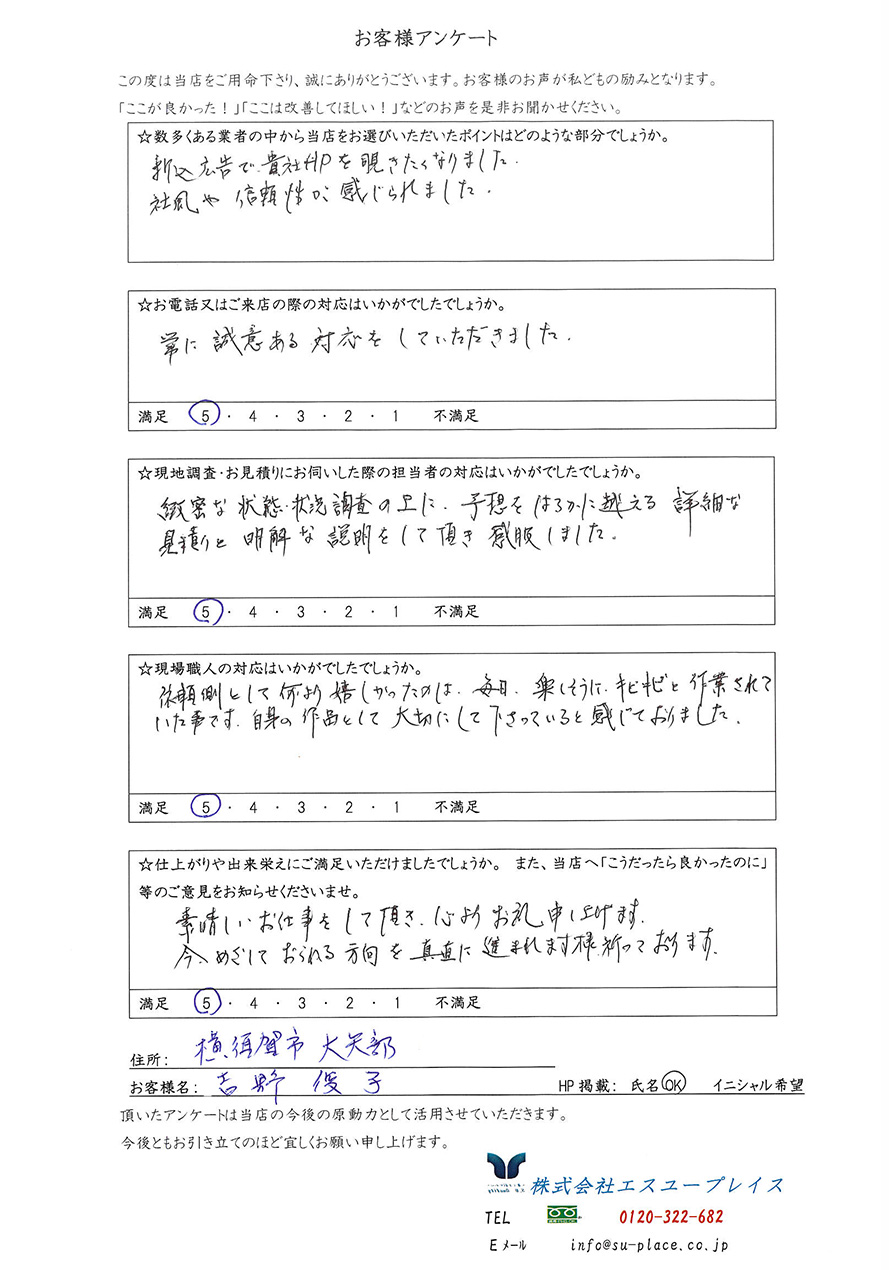 お客様アンケート
この度は当店をご用命下さり、誠にありがとうございます。お客様のお声が私どもの励みとなります。
「ここが良かった!」「ここは改善してほしい!」などのお声を是非お聞かせください。
☆数多くある業者の中から当店をお選びいただいたポイントはどのような部分でしょうか。
折込広告で貴社HPを覗きたくなりました。
社風や信頼性が感じられました。
☆お電話又はご来店の際の対応はいかがでしたでしょうか。
常に誠意ある対応をしていただきました。
満足 5・4・3・2・1 不満足
☆現地調査・お見積りにお伺いした際の担当者の対応はいかがでしたでしょうか。
緻密な状態・状況調査の上に、予想をはるかに越える詳細な
見積りと明解な説明をして頂き感服しました。
満足 5・4・3・2・1 不満足
☆現場職人の対応はいかがでしたでしょうか。
依頼側として何より嬉しかったのは、毎日、楽しそうに、キビキビと作業されて
いた事です。自身の作品として大切にして下さっていると感じておりました。
満足 5・4・3・2・1 不満足
☆仕上がりや出来栄えにご満足いただけましたでしょうか。 また、当店へ「こうだったら良かったのに」
等のご意見をお知らせくださいませ。
素晴しいお仕事をして頂き、心よりお礼申し上げます。
今、めざしておられる方向を真直に進まれます様、祈っております。
満足 5・4・3・2・1 不満足
住所: 横須賀市 大矢部
お客様名: 吉野 俊子 HP掲載: 氏名OK イニシャル希望
頂いたアンケートは当店の今後の原動力として活用させていただきます。
今後ともお引き立てのほど宜しくお願い申し上げます。
株式会社エスユープレイス
TEL 0120-322-682
Eメール info@su-place.co.jp